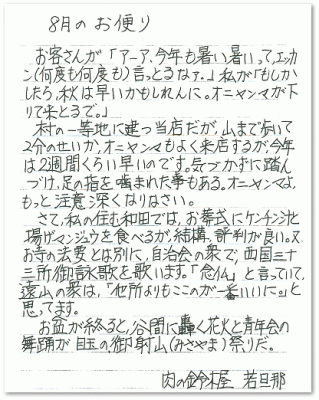 8月のお便り
お客さんが「アーア、今年も暑い暑いって、エッカ
ン(何度も何度も)言っとるなァ。」私が「もしか
したら、秋は早いかもしれんに。オニヤンマが下
りて来とるで。」
村の一等地に建つ当店だが、山まで歩いて
2分のせいか、オニヤンマもよく来店するが、今年
は2週間くらい早いのです。気づかずに踏ん
づけ、足の指を噛まれた事もある。オニヤンマよ、
もっと注意深くなりなさい。
さて、私の住む和田では、お葬式にケンチン汁と
揚げマンジュウを食べるが、結構、評判が良い。又、
お寺の法要とは別に、自治会の衆で、西国三十
三所御詠歌を歌います。「念仏」と言っていて、
遠山の衆は、「他所よりもここのが一番いいに。」と
思ってます。
お盆が終ると、谷間に轟く花火と青年会の
舞踊が目玉の、御射山(みさやま)祭りだ。
肉の鈴木屋 若旦那